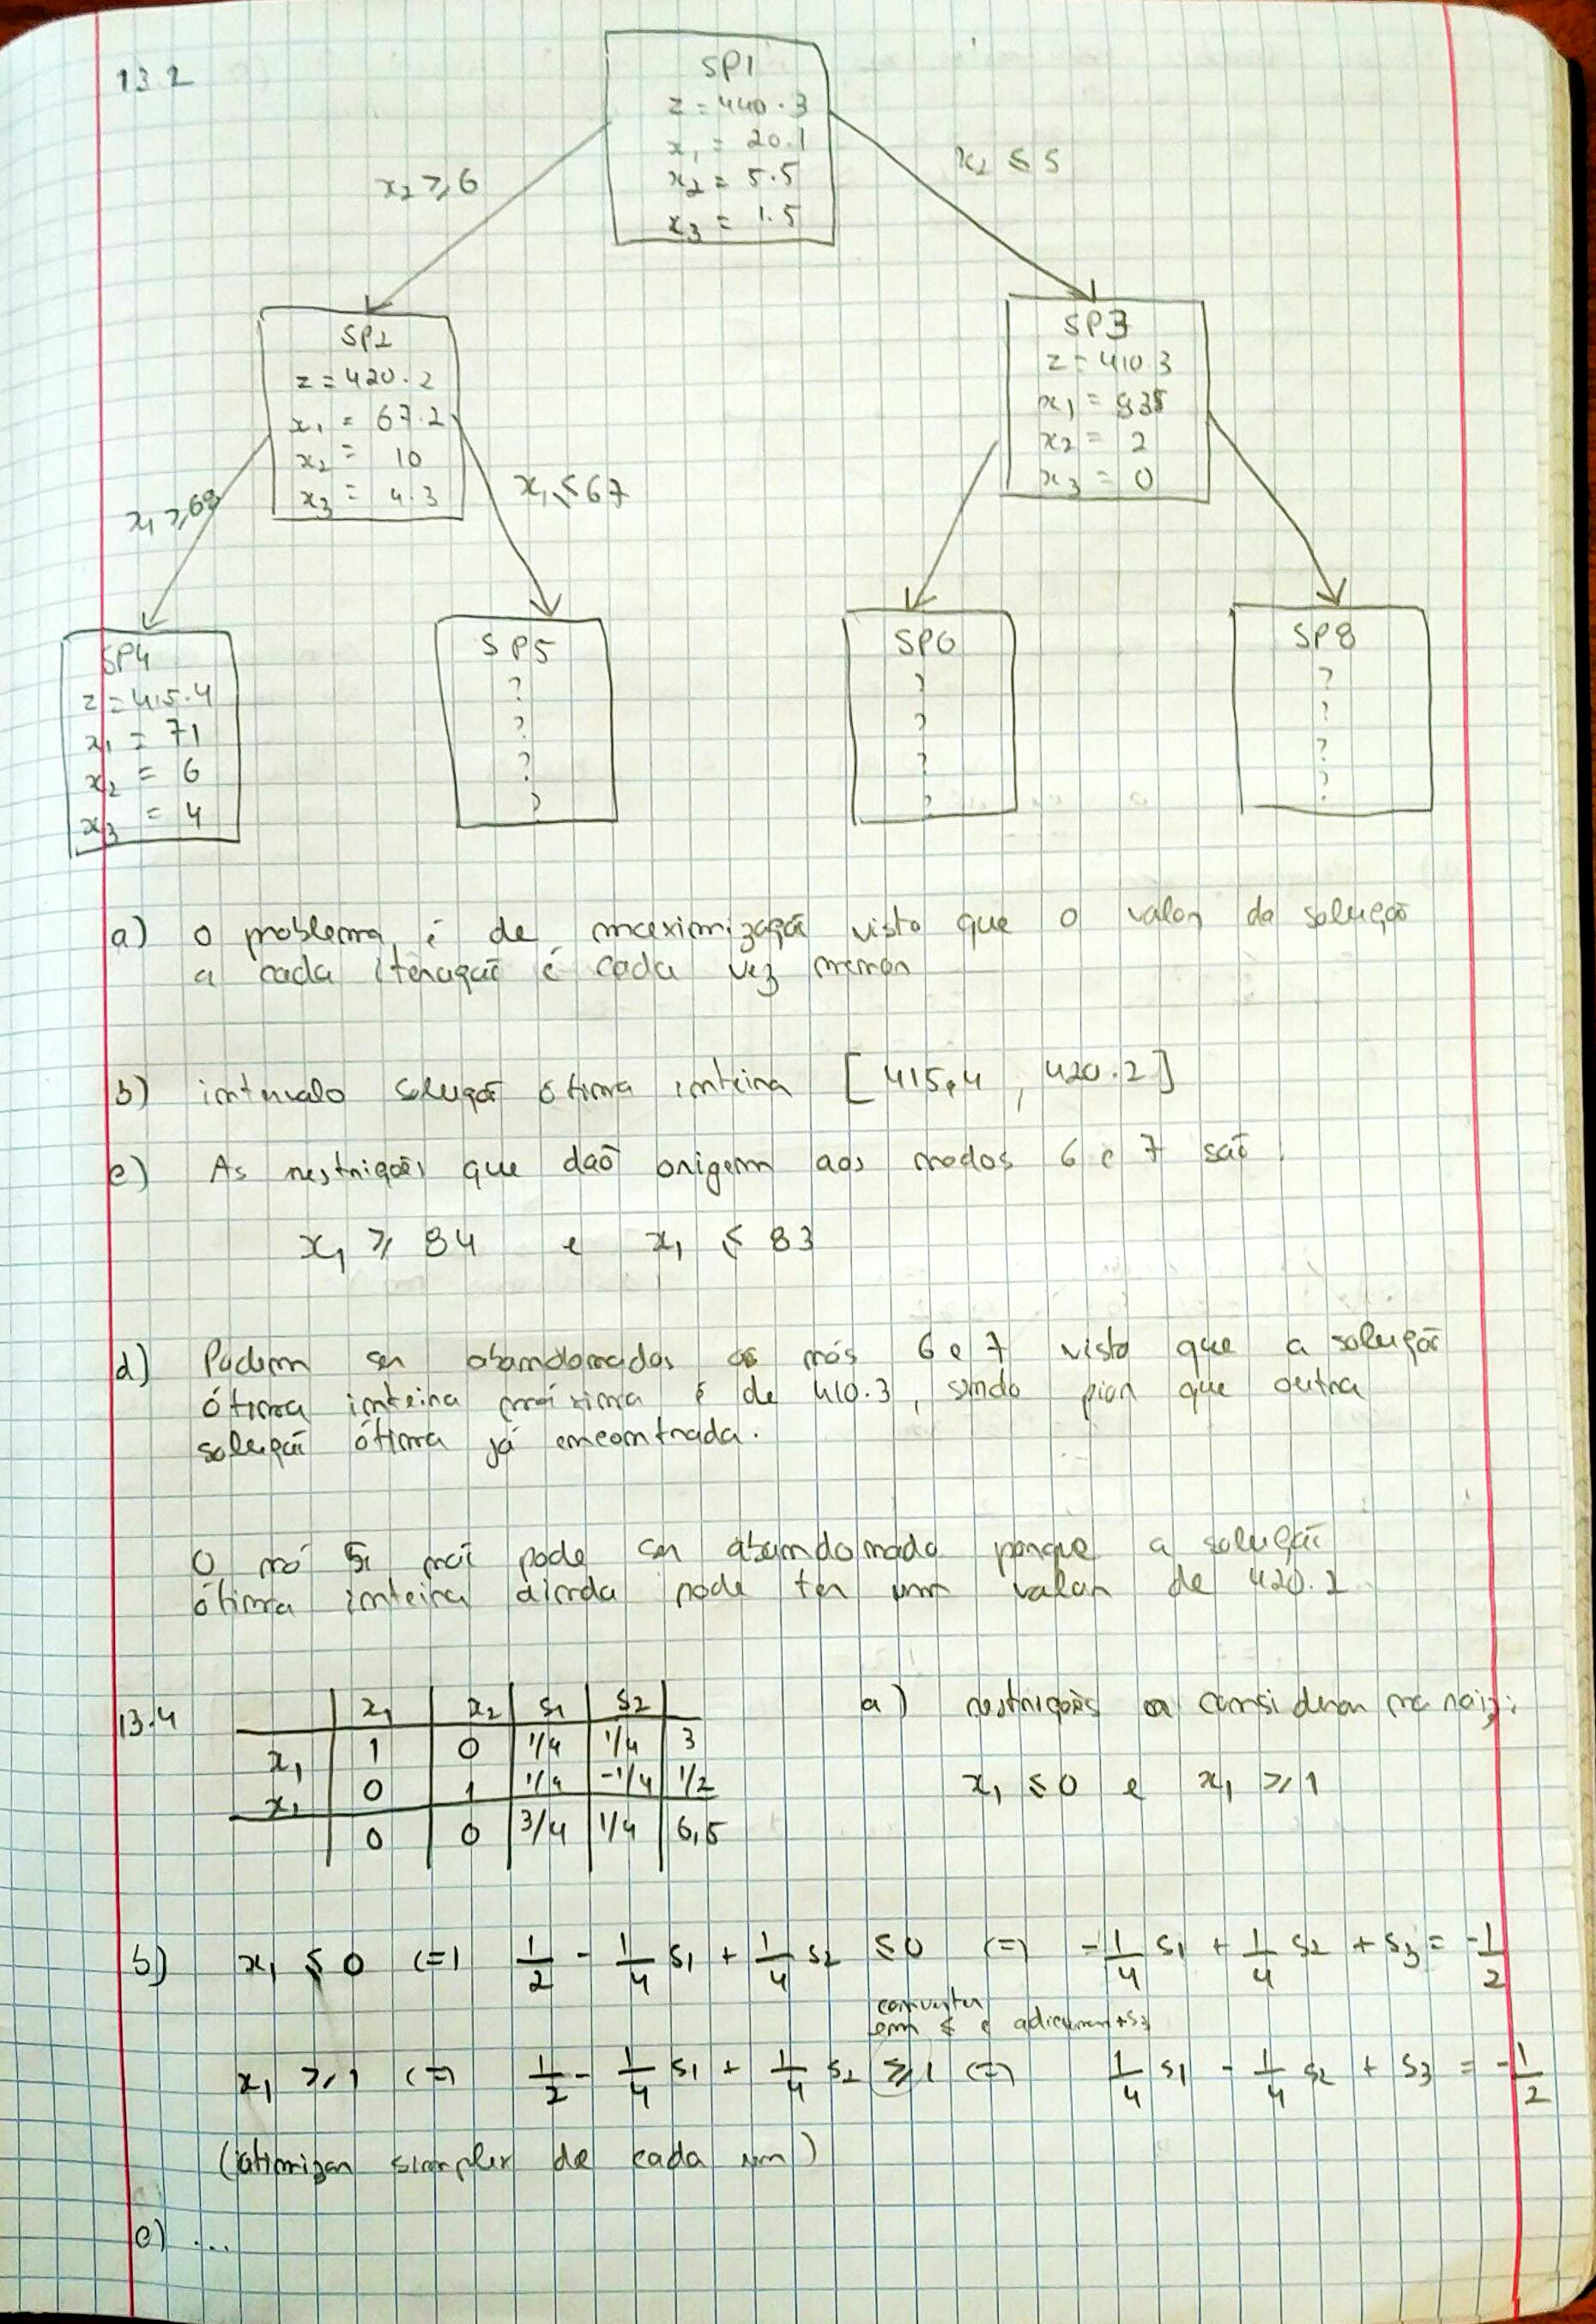 13.2
SP1
z = 440.3
x₁ = 20.1
x₂ = 5.5
x₃ = 1.5
x₂ ≥ 6
x₂ ≤ 5
SP2
z = 420.2
x₁ = 67.2
x₂ = 10
x₃ = 4.3
SP3
z = 410.3
x₁ =
x₂ = 2
x₃ = 0
x₁ ≥ 68
x₁ ≤ 67
SP4
z = 415.4
x₁ = 71
x₂ = 6
x₃ = 4
SP5
?
?
?
?
SP6
?
?
?
?
SP8
?
?
?
?
a) O problema é de maximização visto que o valor da solução
a cada iteração é cada vez menor
b) intervalo solução ótima inteira [415,4 , 420.2]
c) As restrições que daõ origem aos nodos 6 e 7 são:
x₁ ≥ 84 e x₁ ≤ 83
d) Podem ser abandonados os nós 6 e 7 visto que a solução
ótima inteira máxima é de 410.3, sendo pior que outra
solução ótima já encontrada.
O nó 5 não pode ser abandonado porque a solução
ótima inteira ainda pode ter um valor de 420.2
13.4
x₁ x₂ s₁ s₂
x₁ 1 0 1/4 1/4 3
x₂ 0 1 1/4 -1/4 1/2
0 0 3/4 1/4 6,5
a) restrições a considerar na raiz:
x₁ ≤ 0 e x₁ ≥ 1
b) x₁ ≤ 0 (=) 1/2 - 1/4 s₁ + 1/4 s₂ ≤ 0 (=) -1/4 s₁ + 1/4 s₂ + s₃ = -1/2
converter
em ≤ e adicionar + s₃
x₁ ≥ 1 (=) 1/2 - 1/4 s₁ + 1/4 s₂ ≥ 1 (=) 1/4 s₁ - 1/4 s₂ + s₃ = -1/2
(otimizar simplex de cada um)
c) ...